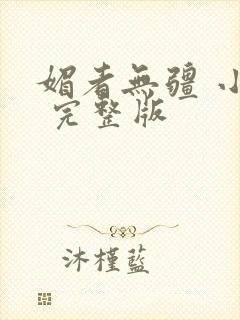 媚者無疆 小
完整版
沐槿藍